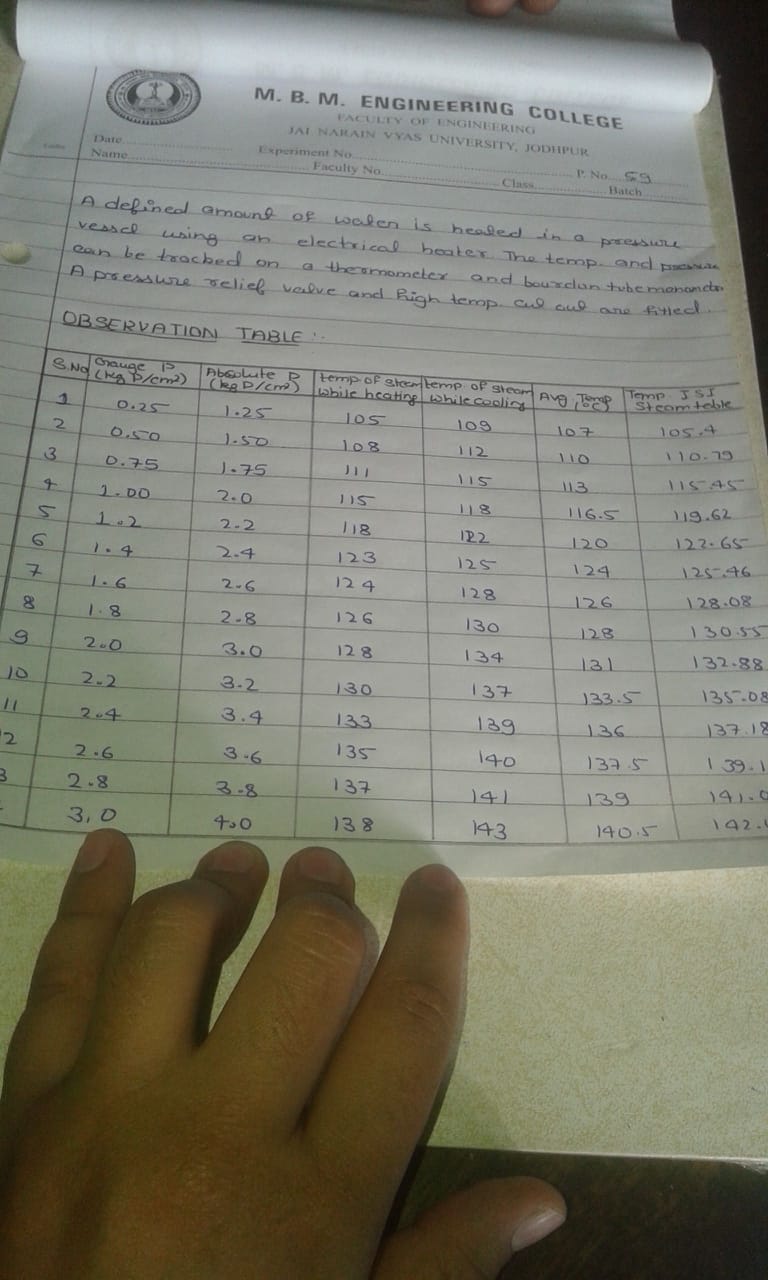 M. B. M. ENGINEERING COLLEGE
FACULTY OF ENGINEERING
JAI NARAIN VYAS UNIVERSITY, JODHPUR
Date Experiment No. P. No. 59
Name Faculty No. Class Batch
A defined amount of water is heated in a pressure
vessel using an electrical heater. The temp. and pressure
can be tracked on a thermometer and bourdun tube
A pressure relief valve and high temp. cut out are fitted.
OBSERVATION TABLE :-
S.No Gauge P (kg P/cm²) Absolute P (kg P/cm²) temp of steam while heating temp. of steam while cooling Avg Temp (°C) Temp. ISI Steam table
1 0.25 1.25 105 109 107 105.4
2 0.50 1.50 108 112 110 110.79
3 0.75 1.75 111 115 113 115.45
4 1.00 2.0 115 118 116.5 119.62
5 1.2 2.2 118 122 120 122.65
6 1.4 2.4 123 125 124 125.46
7 1.6 2.6 124 128 126 128.08
8 1.8 2.8 126 130 128 130.55
9 2.0 3.0 128 134 131 132.88
10 2.2 3.2 130 137 133.5 135.08
11 2.4 3.4 133 139 136 137.18
2 2.6 3.6 135 140 137.5 139.1
3 2.8 3.8 137 141 139 141.0
3.0 4.0 138 143 140.5 142.